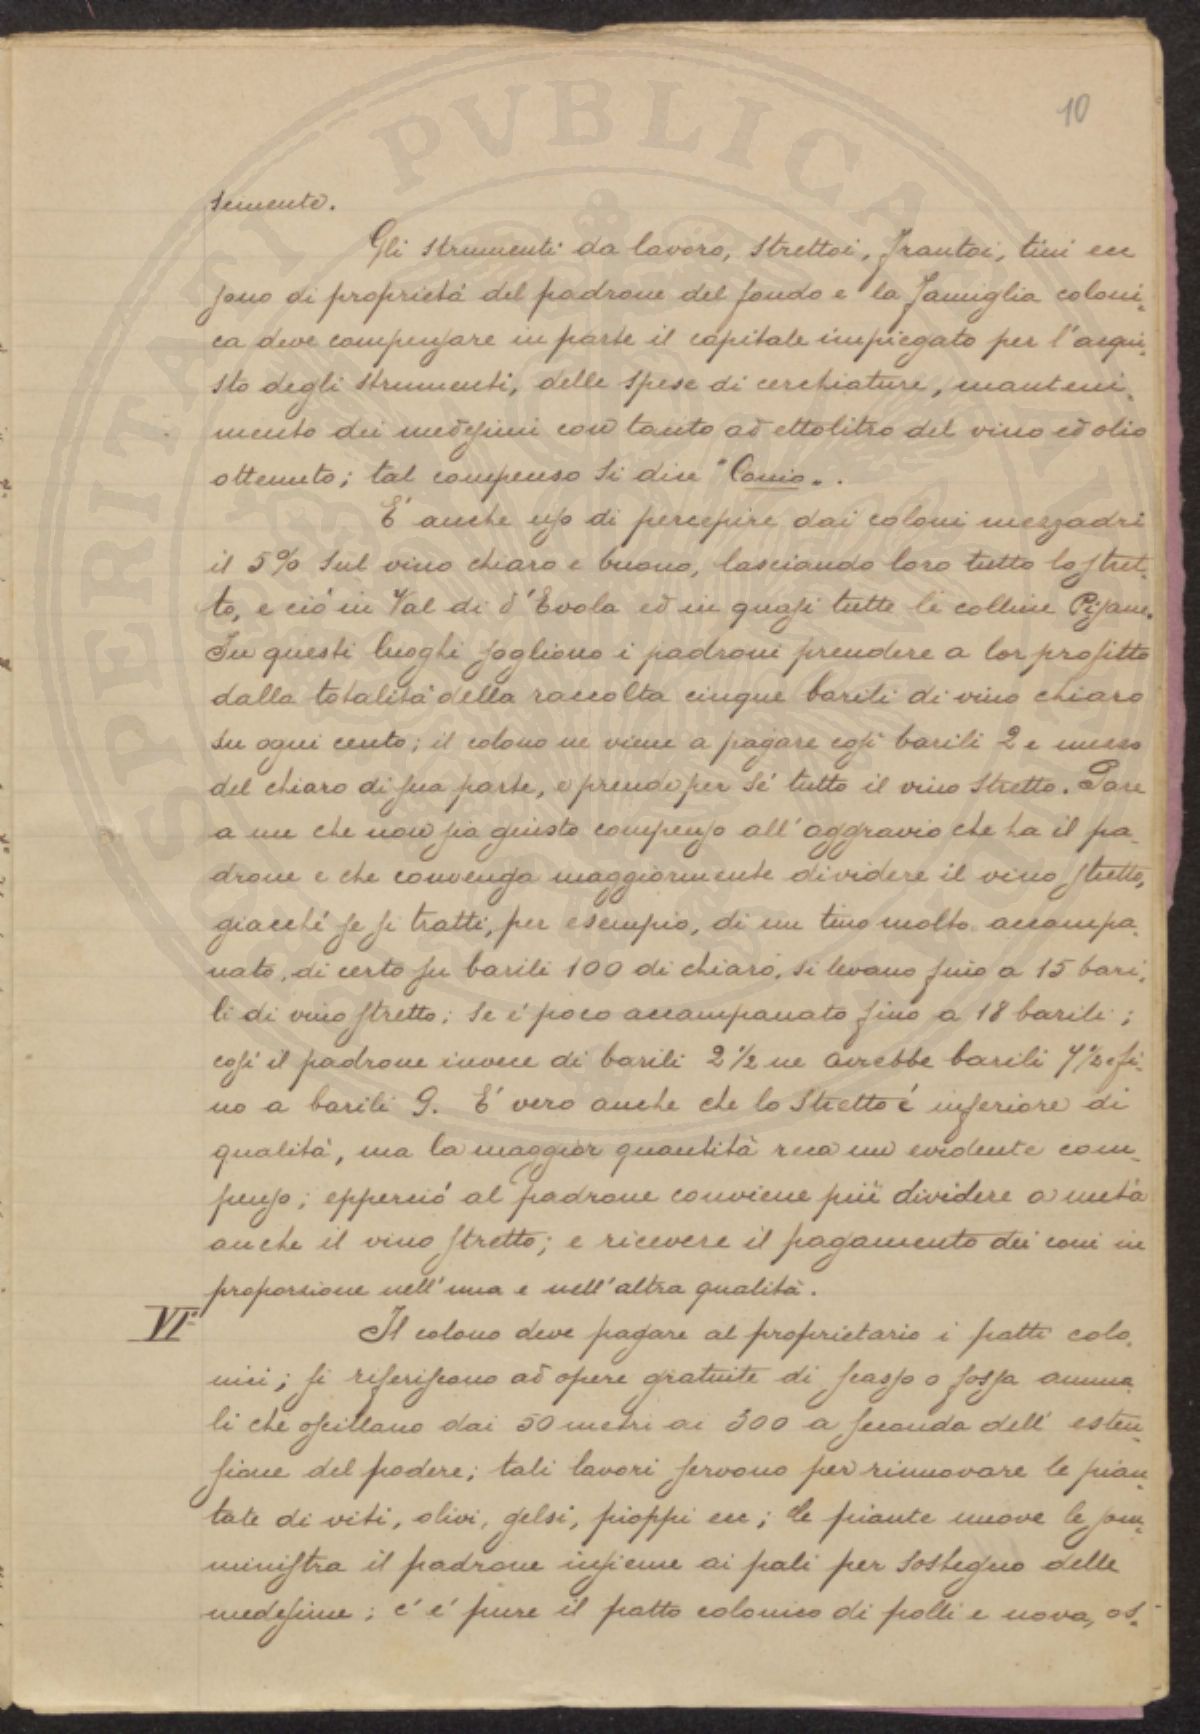 10
semente.
Gli strumenti da lavoro, strettoi, frantoi, tini ecc
sono di proprietá del padrone del fondo e la famiglia coloni-
ca deve compensare in parte il capitale impiegato per l'acqui-
sto degli strumenti, delle spese di cerchiature, manteni-
mento dei medesimi con tanto ad ettolitro del vino ed olio
ottenuto; tal compenso si dice "Comio".
É anche uso di percepire dai coloni mezzadri
il 5% sul vino chiaro e buono, lasciando loro tutto lo stret-
to, e ció in Val di d'Evola ed in quasi tutte le colline Pisane.
In questi luoghi sogliono i padroni prendere a lor profitto
dalla totalitá della raccolta cinque barili di vino chiaro
su ogni cento; il colono ne viene a pagare cosí barili 2 e mezzo
del chiaro di sua parte, e prende per sé tutto il vino stretto. Pare
a me che non sia giusto compenso all'aggravio che ha il pa-
drone e che convenga maggiormente dividere il vino stretto,
giacché se si tratti, per esempio, di un tino molto accampa-
nato, di certo su barili 100 di chiaro, si levano fino a 15 bari-
li di vino stretto; se é poco accampanato fino a 18 barili;
cosí il padrone invece di barili 2 1/2 ne avrebbe barili 7 1/2 e fi-
no a barili 9. É vero anche che lo stretto é inferiore di
qualitá, ma la maggior quantitá reca un evidente com-
penso; epperció al padrone conviene piú dividere a metá
anche il vino stretto; e ricevere il pagamento dei comi in
proporzione nell'una e nell'altra qualitá.
VI°
Il colono deve pagare al proprietario i patti colo-
nici; si riferiscono ad opere gratuite di scasso o fossa annua-
li che oscillano dai 50 metri ai 300 a seconda dell'esten-
sione del podere; tali lavori servono per rinnovare le pian-
tate di viti, olivi, gelsi, pioppi ecc; le piante nuove le som-
ministra il padrone insieme ai pali per sostegno delle
medesime; c'é pure il patto colonico di polli e uova, os-